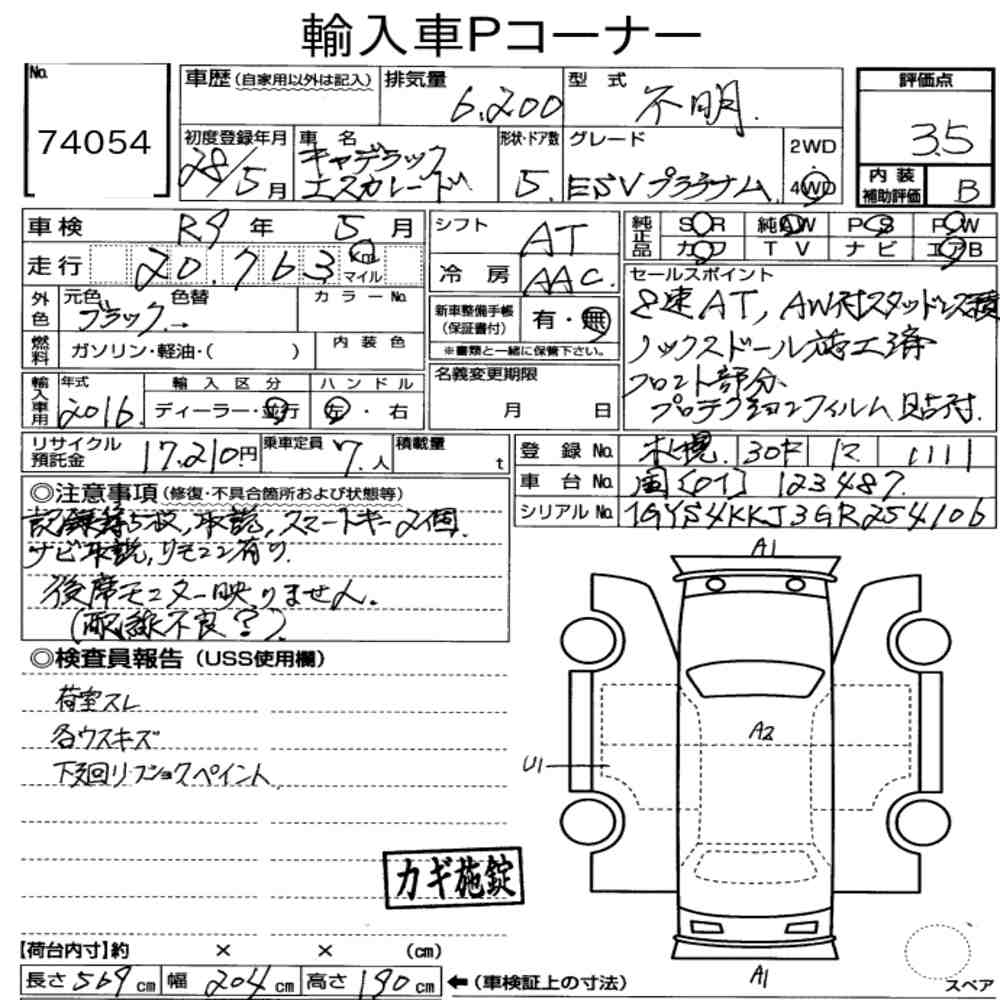 輸入車Pコーナー
No.
74054
車歴 (自家用以外は記入)
排気量
6,200
型式
不明.
評価点
3.5
初度登録年月
28/5月
車名
キャデラック
エスカレード
形状・ドア数
5.
グレード
ESVプラチナム
2WD
4WD
内装
補助評価
B
車検 R9年 5月
シフト AT
純正品 SR 純AW PS PW
カワ TV ナビ エアB
走行 20.763 km マイル
冷房 AAC.
外色 元色 色替 カラーNo.
ブラック →
新車整備手帳
(保証書付)
有・無
※書類と一緒に保管下さい。
セールスポイント
8速AT, AW付スタッドレス積
ノックスドール施工済
フロント部分
プロテクションフィルム貼付.
燃料 ガソリン・軽油・( )
内装色
名義変更期限
月 日
輸入車用 年式 輸入区分 ハンドル
2016. ディーラー・並行 左・右
リサイクル
預託金
17,210円
乗車定員 7.人
積載量 t
登録No. 札幌. 30 1111
車台No. 国[01] 123487.
シリアルNo. 1GYS4KKJ3GR254106
◎注意事項(修復・不具合箇所および状態等)
取説, スマートキー2個.
ナビ取説, リモコン有り.
後席モニター映りません.
(配線不良?)
◎検査員報告(USS使用欄)
荷室スレ
各ウスキズ
下廻リフショクペイント
A1
A2
U1
A1
カギ施錠
スペア
【荷台内寸】約 × × (cm)
長さ569cm 幅204cm 高さ190cm ←(車検証上の寸法)